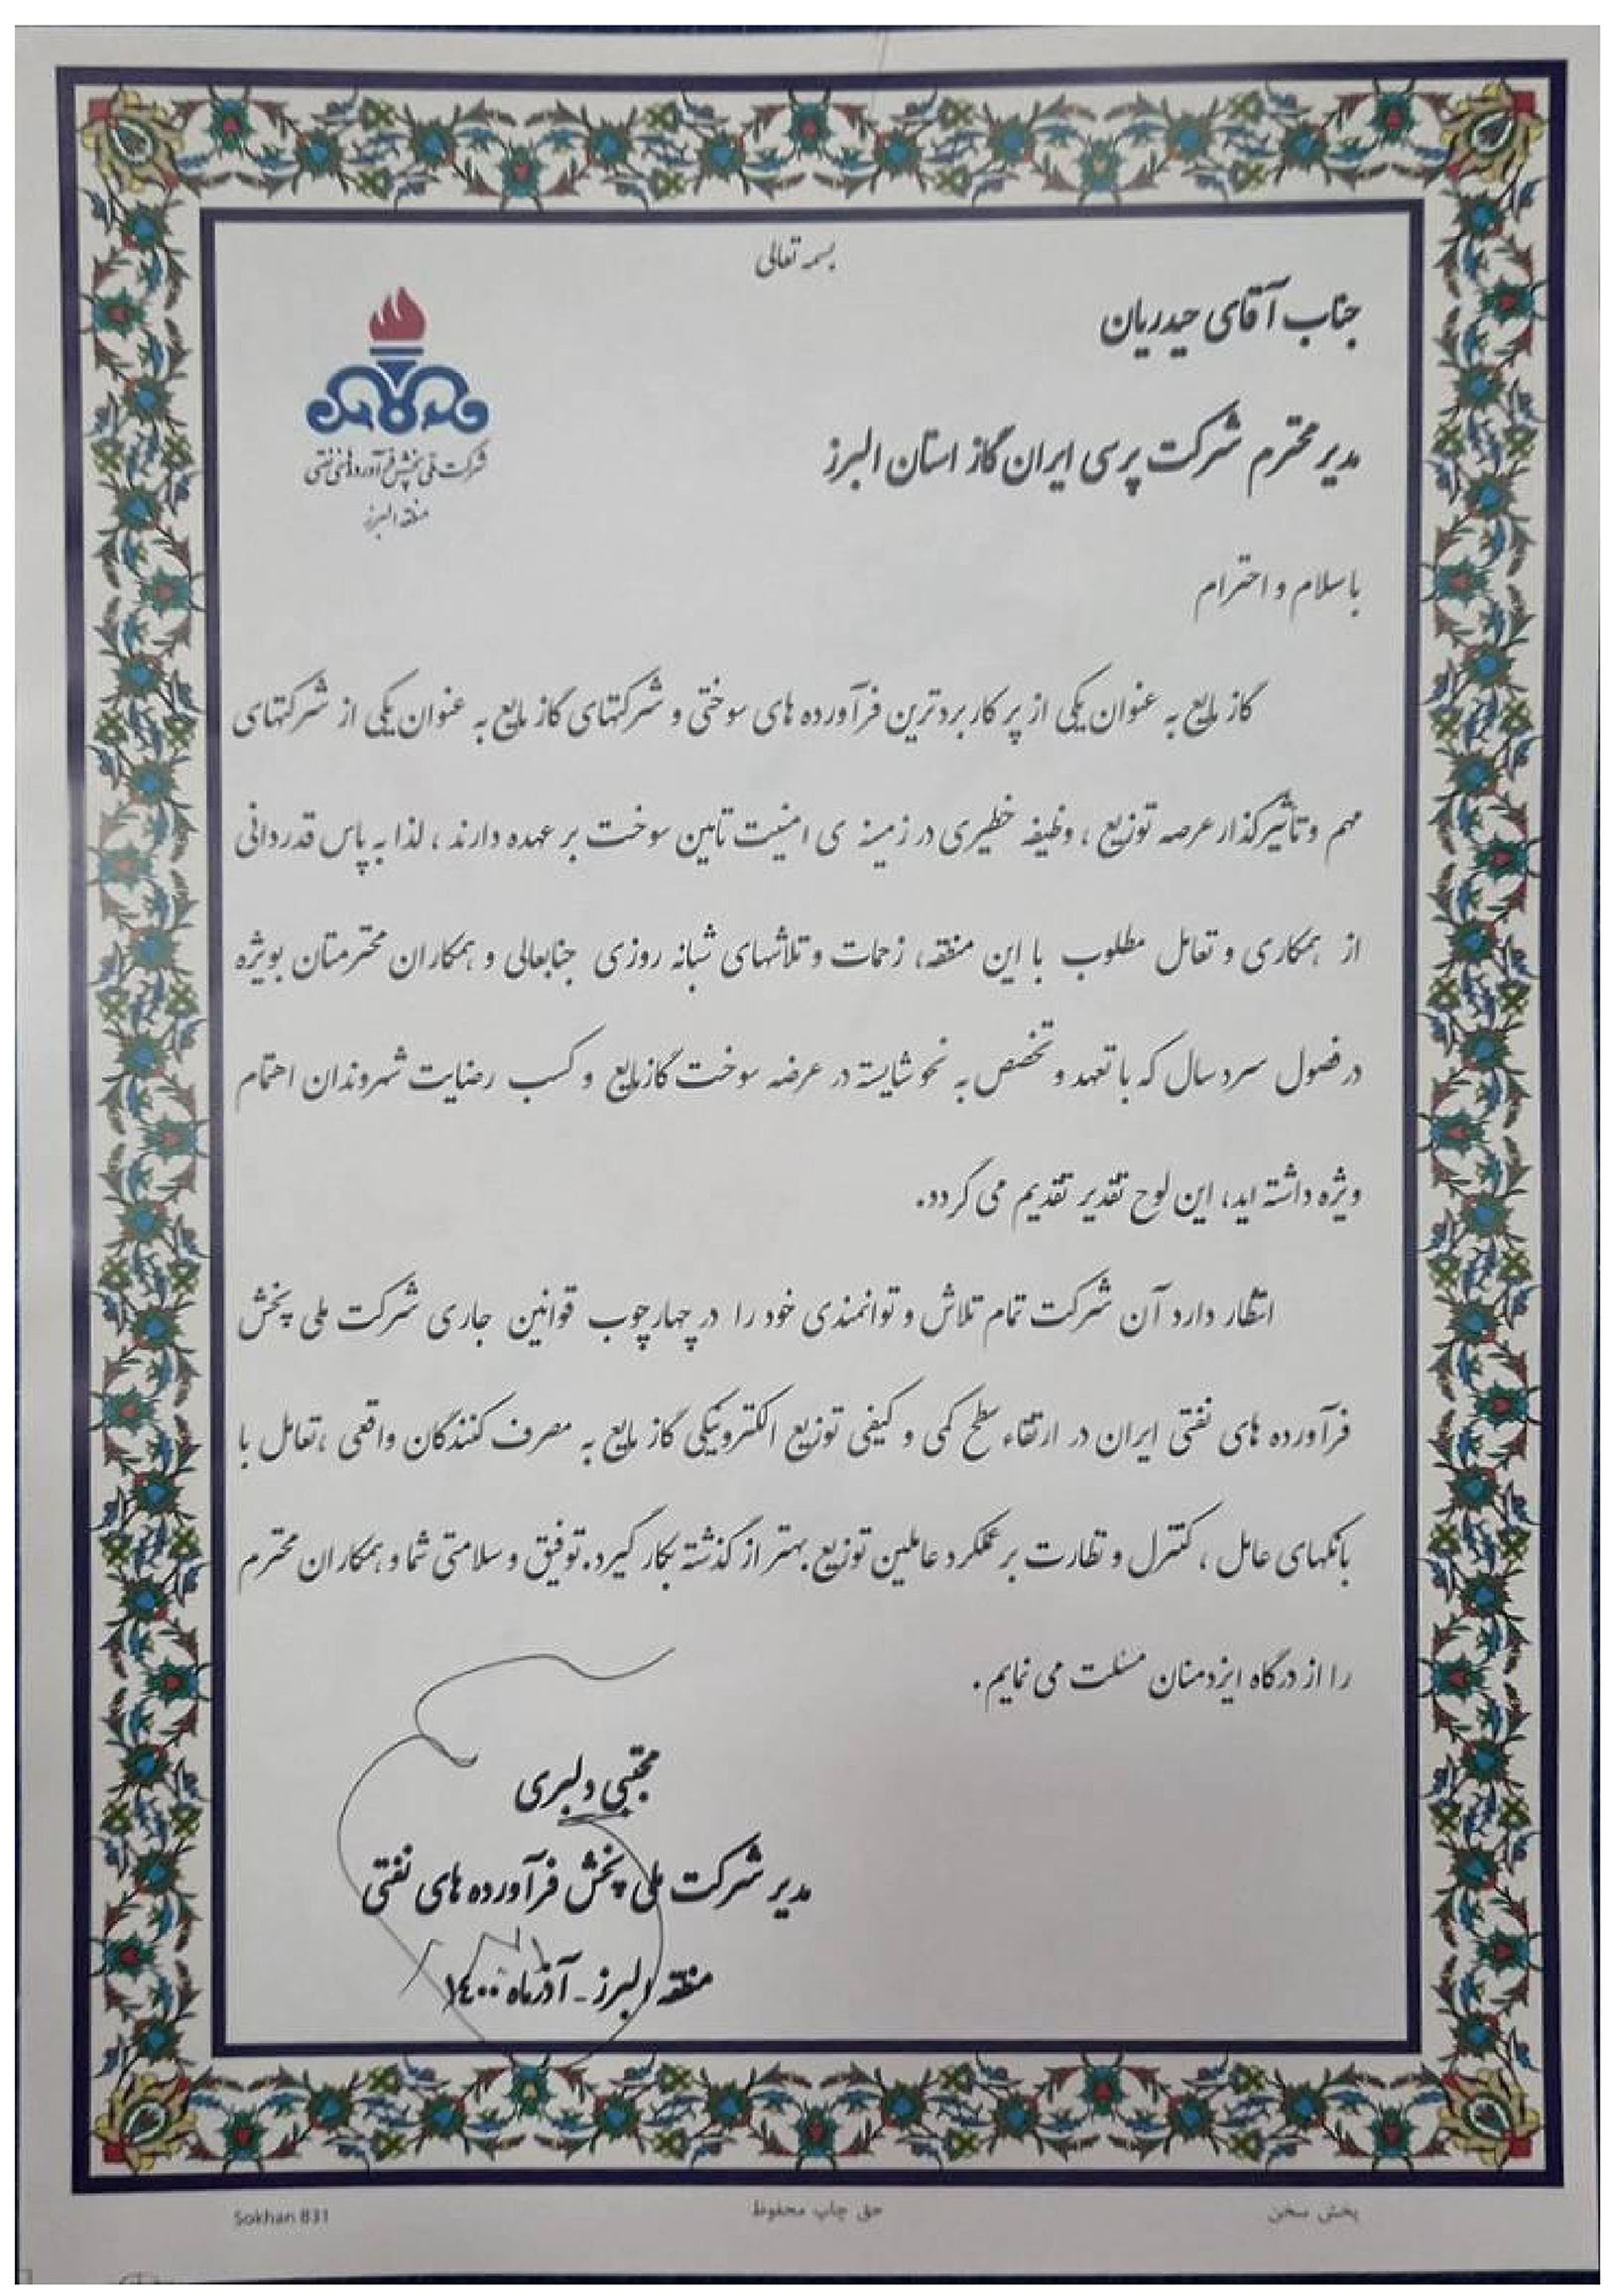 بسمه تعالی
جناب آقای حیدریان
مدیر محترم شرکت پرسی ایران گاز استان البرز
شرکت ملی پخش فرآورده‌های نفتی
منطقه البرز
با سلام و احترام
گاز مایع به عنوان یکی از پر کاربردترین فرآورده های سوختی و شرکتهای گاز مایع به عنوان یکی از شرکتهای
مهم و تأثیرگذار عرصه توزیع ، وظیفه خطیری در زمینه ی امنیت تامین سوخت بر عهده دارند ، لذا به پاس قدردانی
از همکاری و تعامل مطلوب با این منطقه، زحمات و تلاشهای شبانه روزی جنابعالی و همکاران محترمتان بویژه
در فصول سرد سال که با تعهد و تخصص به نحو شایسته در عرضه سوخت گاز مایع و کسب رضایت شهروندان اهتمام
ویژه داشته اید، این لوح تقدیر تقدیم می گردد.
انتظار دارد آن شرکت تمام تلاش و توانمندی خود را در چهارچوب قوانین جاری شرکت ملی پخش
فرآورده های نفتی ایران در ارتقاء سطح کمی و کیفی توزیع الکترونیکی گاز مایع به مصرف کنندگان واقعی ،تعامل با
بانکهای عامل ، کنترل و نظارت بر عملکرد عاملین توزیع بهتر از گذشته بکار گیرد. توفیق و سلامتی شما و همکاران محترم
را از درگاه ایزدمنان مسئلت می نمایم .
مجتبی دلبری
مدیر شرکت ملی پخش فرآورده های نفتی
منطقه البرز - آذرماه ۱۴۰۰
Sokhan 831
حق چاپ محفوظ
پخش سخن